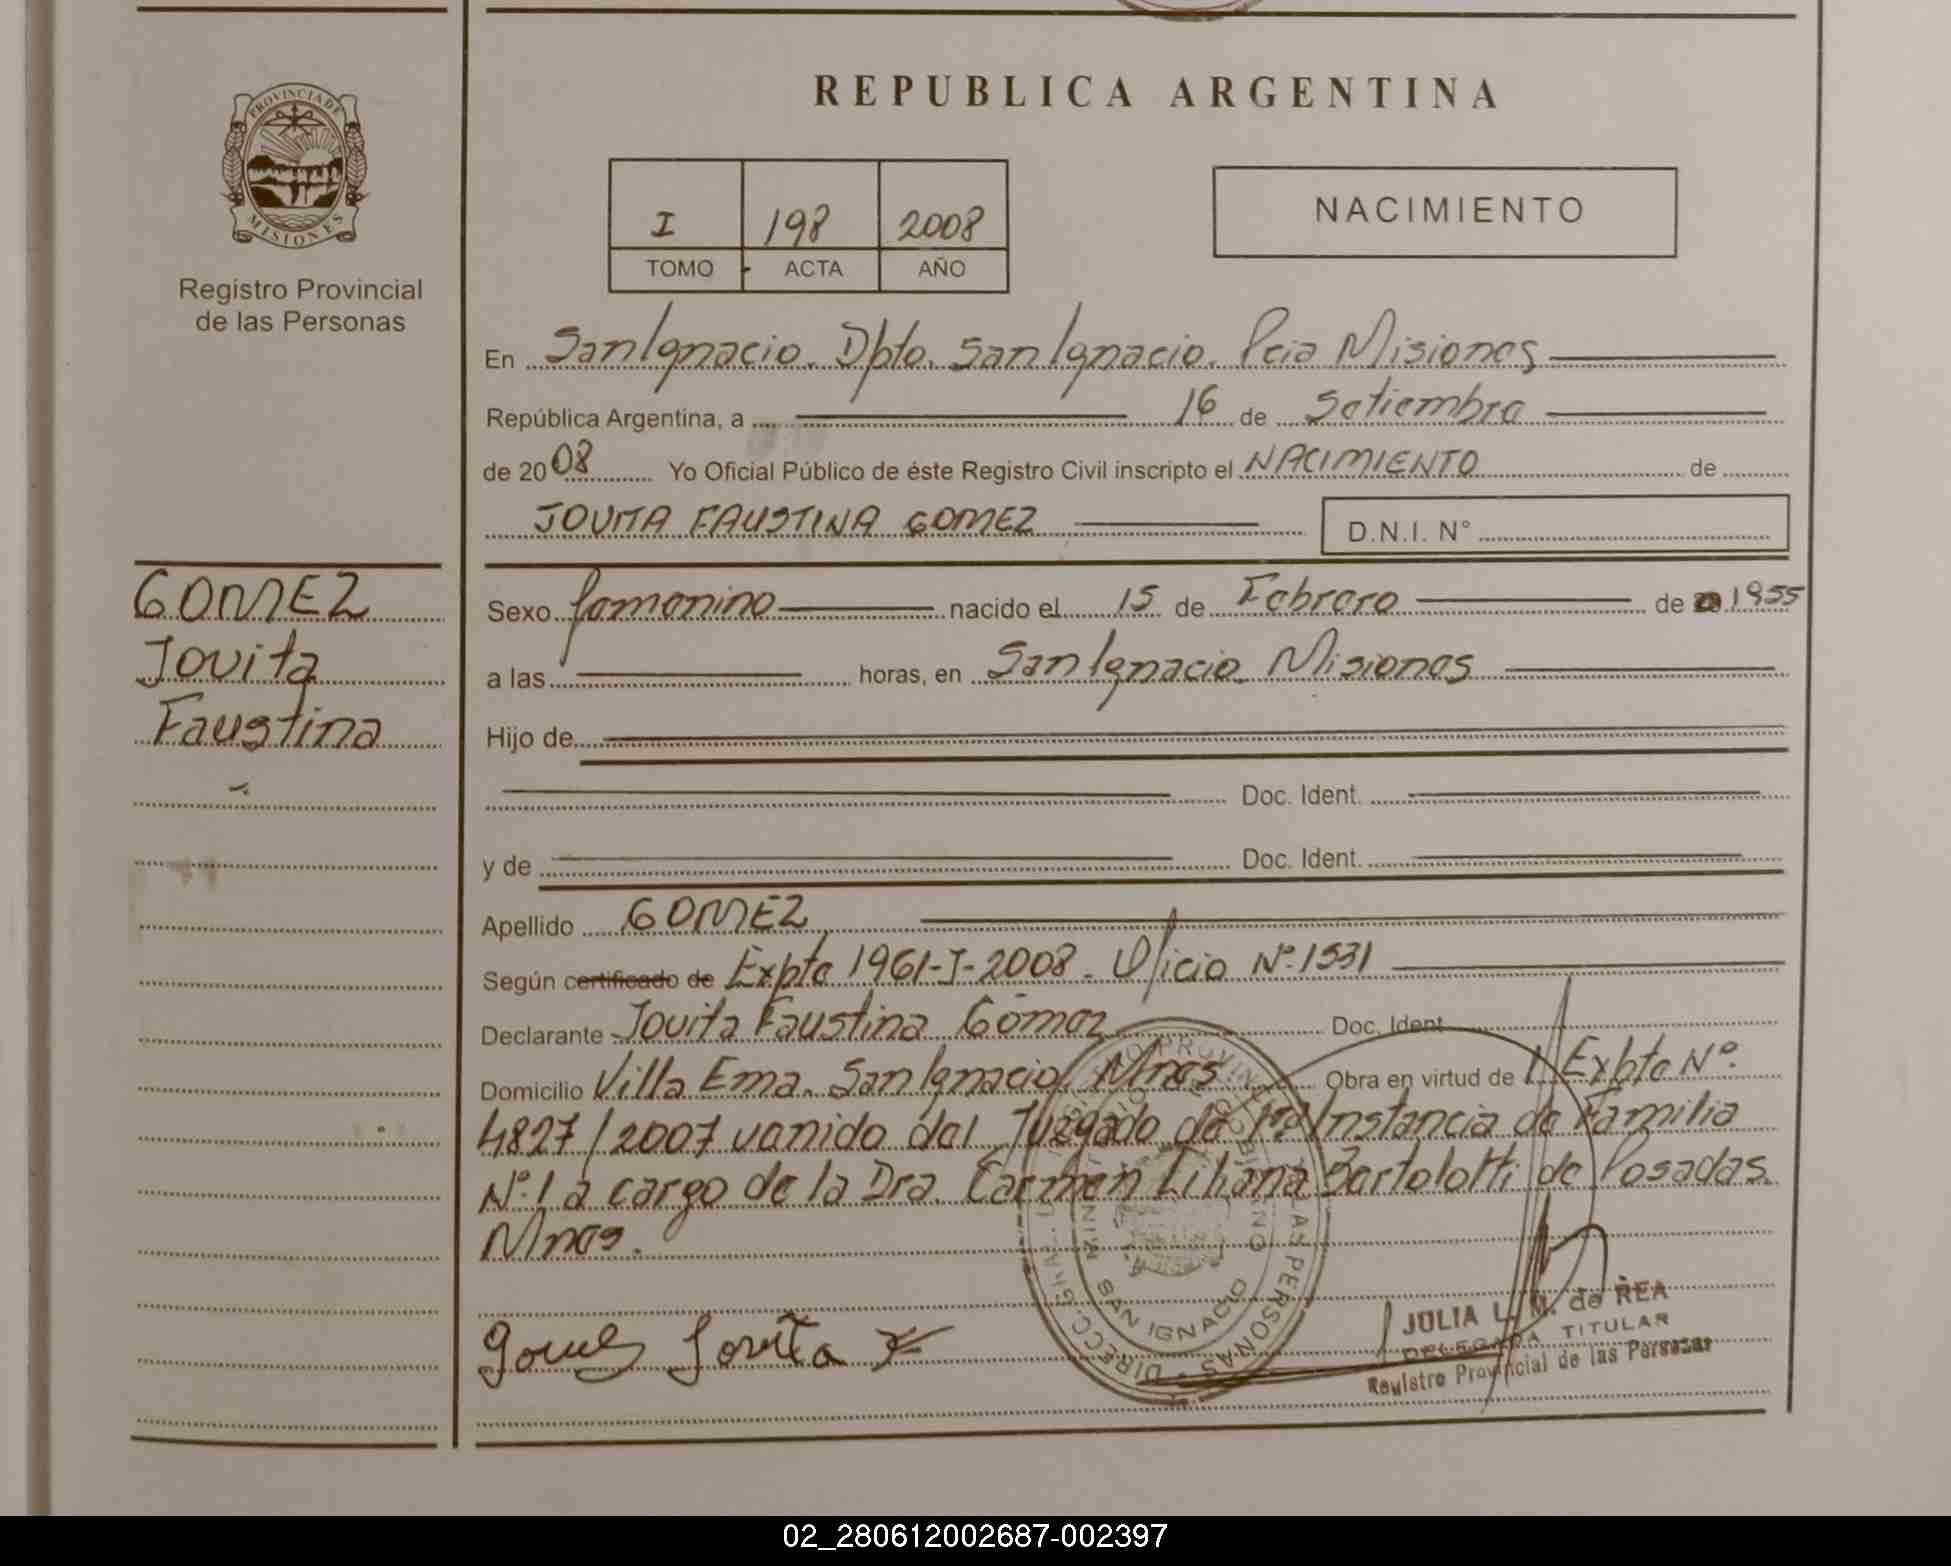 REPUBLICA ARGENTINA
PROVINCIA DE
MISIONES
Registro Provincial
de las Personas
I 198 2008
TOMO ACTA AÑO
NACIMIENTO
En SanIgnacio. Dpto. SanIgnacio. Pcia Misiones
República Argentina, a 16 de Setiembre
de 2008 Yo Oficial Público de éste Registro Civil inscripto el NACIMIENTO de
JOVITA FAUSTINA GOMEZ D.N.I. N°
GOMEZ
Jovita
Faustina
Sexo femenino nacido el 15 de Febrero de 1955
a las horas, en SanIgnacio. Misiones
Hijo de
Doc. Ident.
y de Doc. Ident.
Apellido GOMEZ
Según certificado de Expte 1961-J-2008. Oficio N°. 1531
Declarante Jovita Faustina Gómez Doc. Ident
Domicilio Villa Ema. SanIgnacio. Mnes Obra en virtud de Expte N°.
4827/2007 venido del Juzgado de 1ra Instancia de Familia
N°. 1 a cargo de la Dra. Carmen Liliana Bortolotti de Posadas.
Mnes.
Gomes Jovita
SAN IGNACIO
JULIA L. M. de REA
DELEGADA TITULAR
Registro Provincial de las Personas
02_280612002687-002397